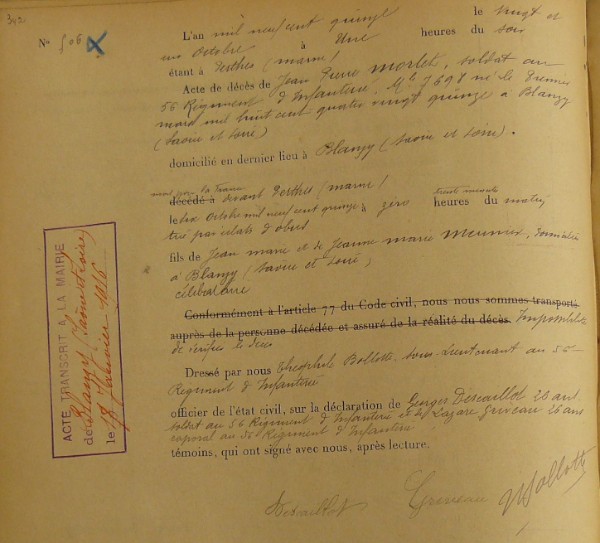 342
N° 506
L'an mil neuf cent quinze le vingt et
un octobre à Une heures du soir
étant à Perthes (marne)
Acte de décès de Jean Pierre Morlet, soldat au
56 Régiment d'Infanterie, Mle 7698 né le Premier
mars mil huit cent quatre vingt quinze à Blanzy
(Saône et Loire)
domicilié en dernier lieu à Blanzy (Saône et Loire).
mort pour la France
décédé à devant Perthes (marne)
le dix octobre mil neuf cent quinze à zéro heures trente minutes du matin,
tué par éclats d'obus
fils de Jean marie et de Jeanne marie Meunier, domiciliés
à Blanzy (Saône et Loire),
célibataire
Conformément à l'article 77 du Code civil, nous nous sommes transporté
auprès de la personne décédée et assuré de la réalité du décès. Impossibilité
de vérifier le décès
Dressé par nous Théophile Bollotte, Sous-Lieutenant au 56
Régiment d'Infanterie
officier de l'état civil, sur la déclaration de Georges Desvaillot 20 ans
soldat au 56 Régiment d'Infanterie et de Lazare Griveau 26 ans
caporal au 56 Régiment d'Infanterie
témoins, qui ont signé avec nous, après lecture.
Desvaillot Griveau Bollotte
ACTE TRANSCRIT A LA MAIRIE
de Blanzy (Saône et Loire)
le 18 Janvier 1916